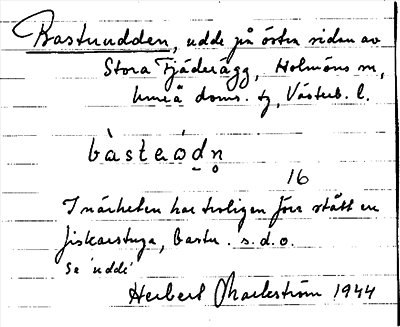 Bastuudden, udde på östra sidan av
Stora Fjäderägg, Holmöns sn,
Umeå doms. tg, Västerb. l.
bàstaòdn̥
16
I närheten har troligen förr stått en
fiskarstuga, bastu. s.d.o.
Se 'udde'
Herbert Markström 1944